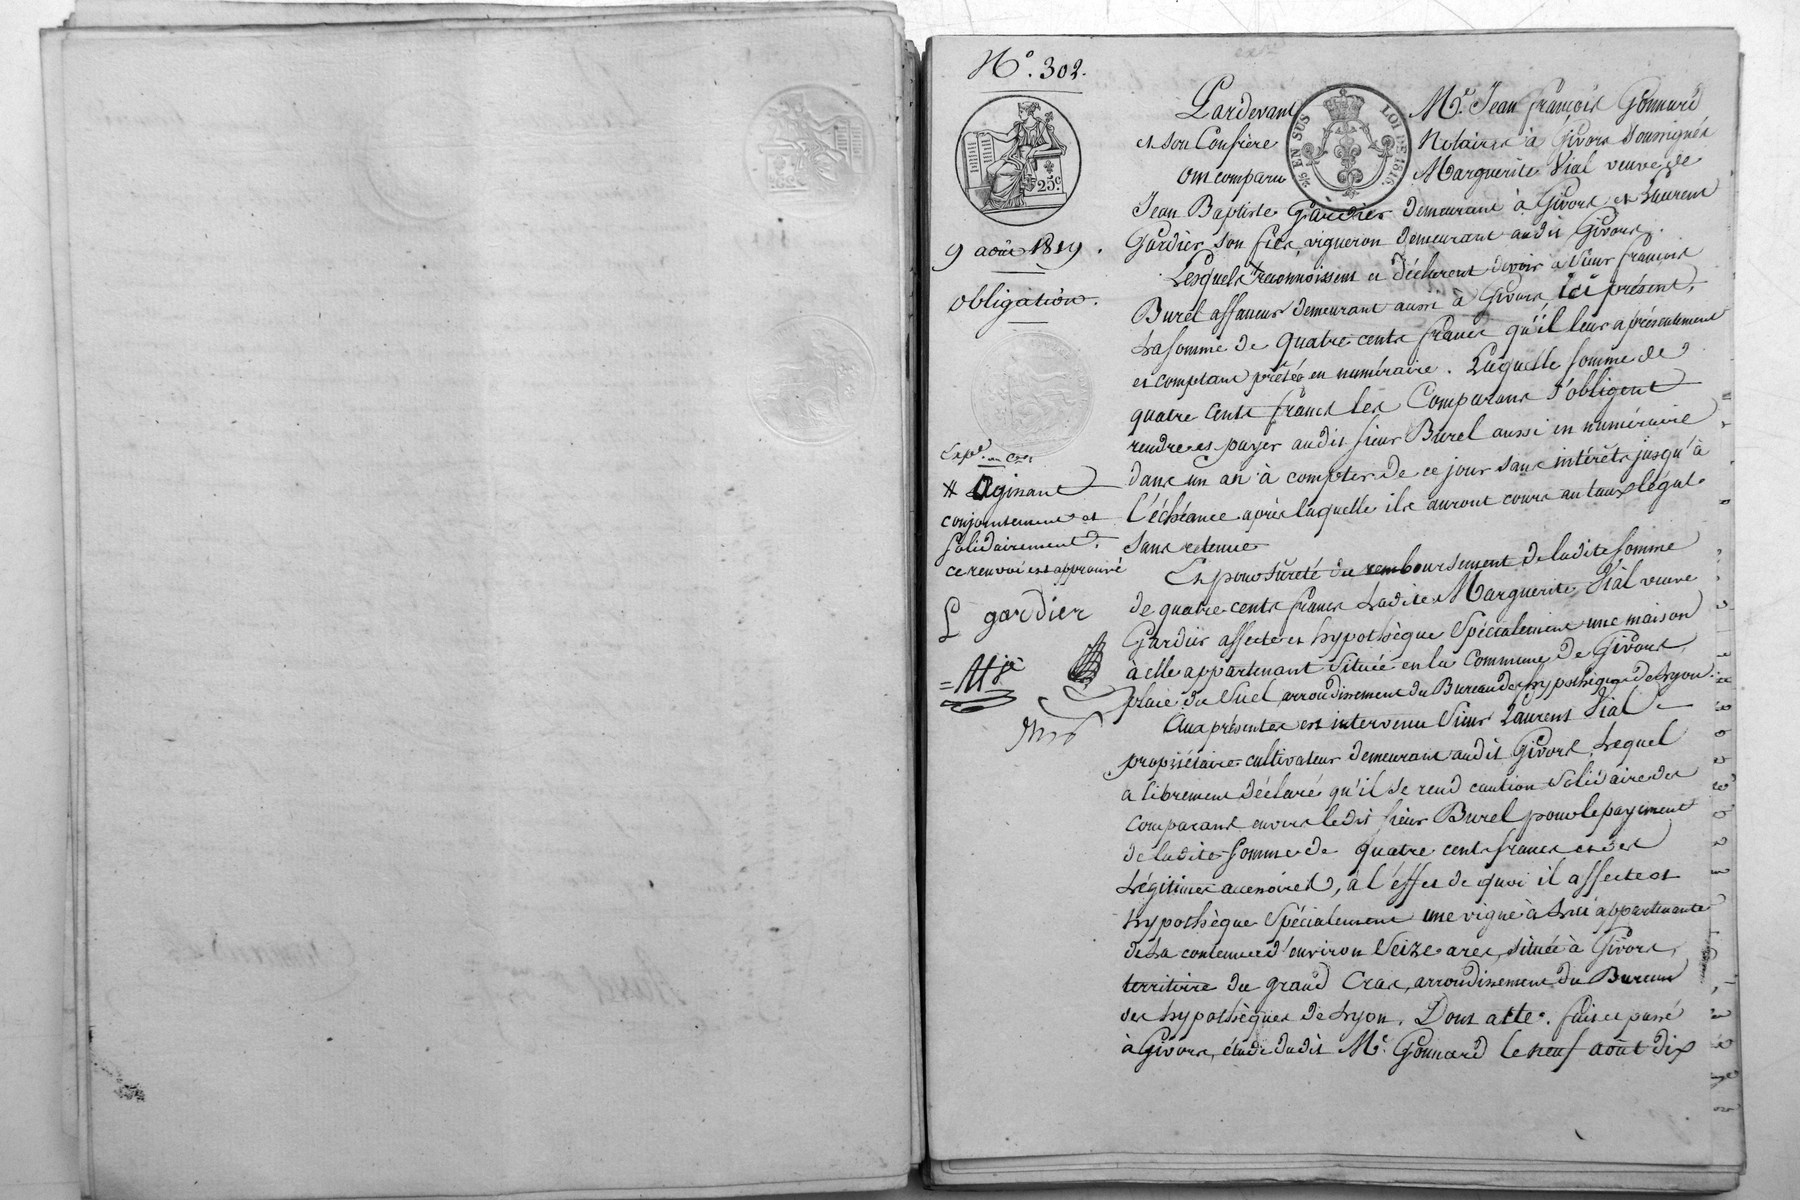 N.° 302.
25 c
9 août 1819.
obligation.
Expé. en
# Agissant
conjointement et
solidairement.
ce renvoi est approuvé
L gardier
25 EN SUS LOI DE 1816.
Pardevant Me. Jean françois Gonnard
et son Confrère Notaires à Givors soussignés
Ont comparu Marguerite Vial veuve de
Jean Baptiste Gardier demeurant à Givors et Laurent
Gardier son fils, vigneron demeurant audit Givors.
Lesquels # reconnoissent et déclarent devoir à sieur françois
Burel affaneur demeurant aussi à Givors, ici présent,
La somme de quatre cents francs qu'il leur a présentement
et comptant prêtée en numéraire. Laquelle somme de
quatre cents francs les Comparans s'obligent
rendre et payer audit sieur Burel aussi en numéraire
dans un an à compter de ce jour sans intérêts jusqu'à
l'échéance après laquelle ils auront cours au taux légal
sans retenue
Et pour sureté du remboursement de ladite somme
de quatre cents francs Ladite Marguerite Vial veuve
Gardier affecte et hypothèque Spécialement une maison
à elle appartenant située en la Commune de Givors,
place du Suel arrondissement du Bureau des hypothèques de Lyon.
Aux présentes est intervenu Sieur Laurent Vial
propriétaire cultivateur demeurant audit Givors Lequel
a librement déclaré qu'il se rend caution Solidaire des
Comparans envers ledit sieur Burel pour le payement
de ladite somme de quatre cents francs et des
Légitimes accessoires, à l'effet de quoi il affecte et
hypothèque Spécialement une vigne à lui appartenante
de la contenue d'environ Seize ares, située à Givors,
territoire du grand Cras, arrondissement du Bureau
des hypothèques de Lyon. Dont acte. fait et passé
à Givors, étude dudit Me. Gonnard le neuf août dix